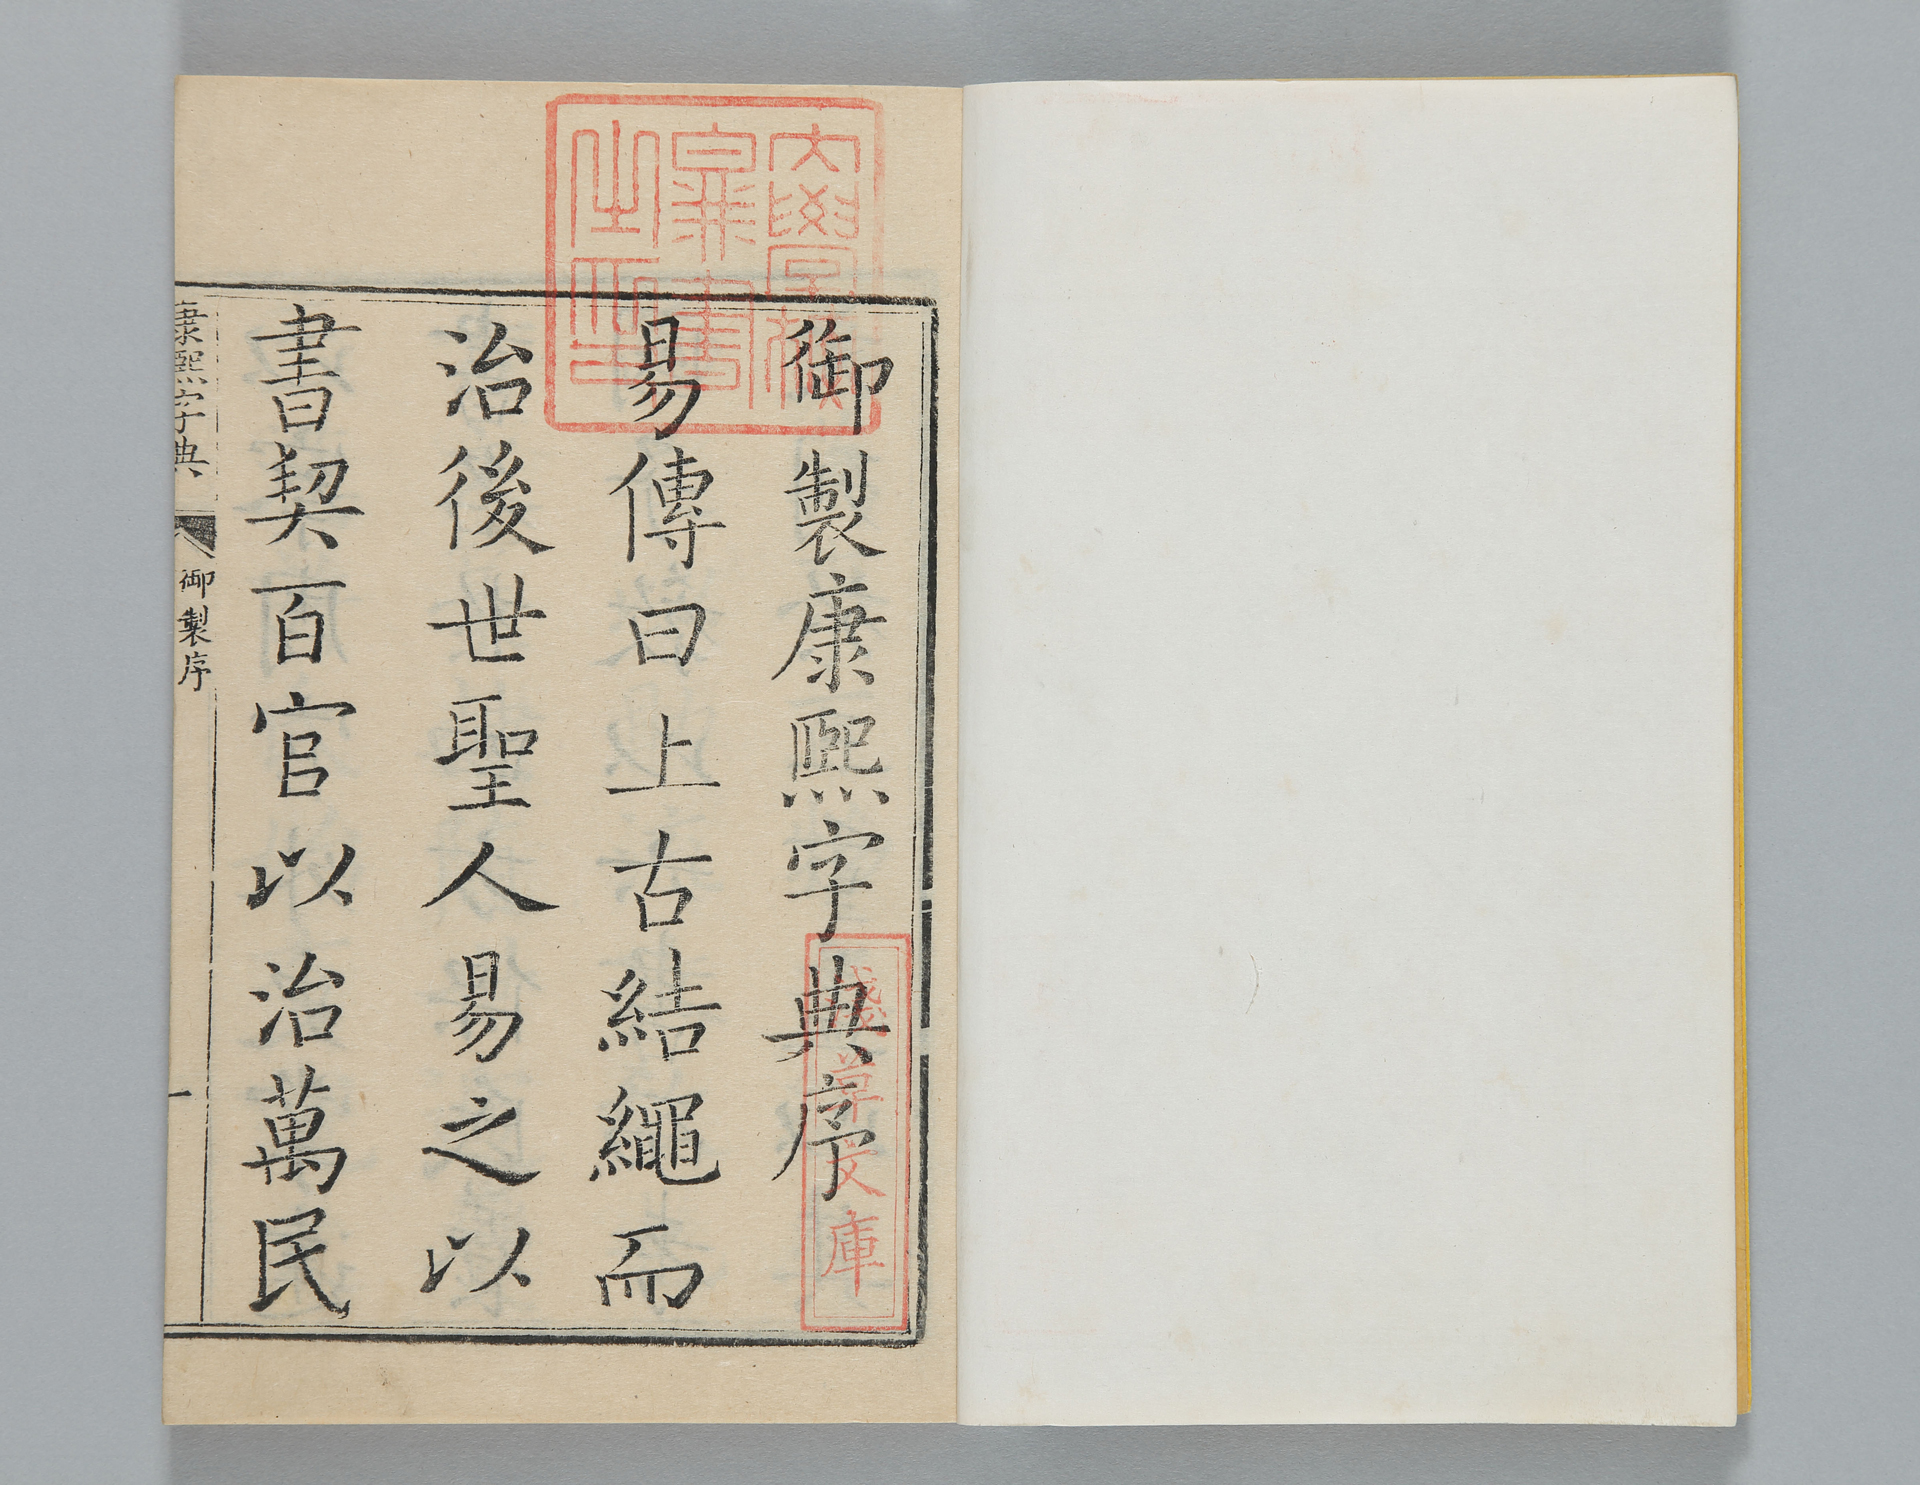 御製康熙字典序
易傳曰上古結繩而
治後世聖人易之以
書契百官以治萬民
康熙字典
御製序
一
文庫